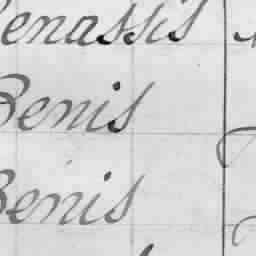 Benassis
Benis
Benis